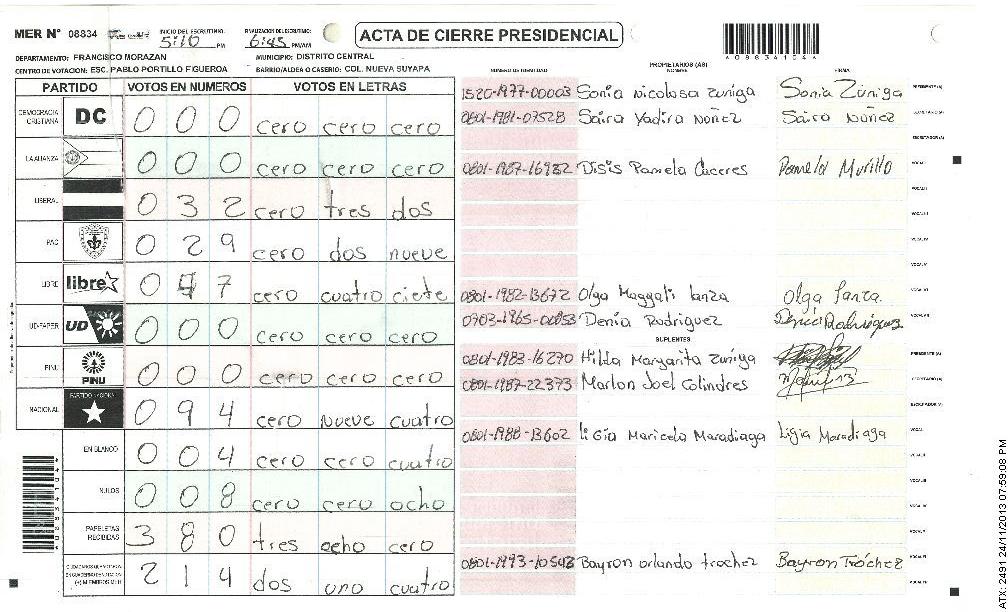 MER N° 08834
INICIO DEL ESCRUTINIO: 5:10 PM
FINALIZACION DEL ESCRUTINIO: 6:45 PM/AM
ACTA DE CIERRE PRESIDENCIAL
*088341044*
DEPARTAMENTO: FRANCISCO MORAZAN MUNICIPIO: DISTRITO CENTRAL
CENTRO DE VOTACION: ESC. PABLO PORTILLO FIGUEROA BARRIO/ALDEA O CASERIO: COL. NUEVA SUYAPA
PARTIDO VOTOS EN NUMEROS VOTOS EN LETRAS
DEMOCRACIA CRISTIANA DC 0 0 0 cero cero cero
LA ALIANZA 0 0 0 cero cero cero
LIBERAL 0 3 2 cero tres dos
PAC 0 2 9 cero dos nueve
LIBRE libre 0 4 7 cero cuatro ciete
UD-FAPER UD 0 0 0 cero cero cero
PINU PINU 0 0 0 cero cero cero
NACIONAL PARTIDO NACIONAL 0 9 4 cero nueve cuatro
EN BLANCO 0 0 4 cero cero cuatro
NULOS 0 0 8 cero cero ocho
PAPELETAS RECIBIDAS 3 8 0 tres ocho cero
2 1 4 dos uno cuatro
PROPIETARIOS (AS)
NUMERO DE IDENTIDAD NOMBRE FIRMA
1520-1977-00003 Sonia Nicolosa Zuniga Sonia Zúniga PRESIDENTE (A)
0801-1981-07528 Saira Yadira Núñez Saira Nuñez SECRETARIO (A)
ESCRUTADOR (A)
0801-1987-16982 Disis Pamela Caceres Pamela Murillo VOCAL I
VOCAL II
VOCAL III
VOCAL IV
VOCAL V
0801-1982-13672 Olga Maggali Lanza Olga Lanza VOCAL VI
0703-1965-00853 Denia Rodriguez Denia Rodriguez VOCAL VII
SUPLENTES
0801-1983-16270 Hilda Margarita Zuniga PRESIDENTE (A)
0801-1987-22373 Marlon Joel Colindres SECRETARIO (A)
ESCRUTADOR (A)
0801-1988-13602 Ligia Maricela Maradiaga Ligia Maradiaga VOCAL I
VOCAL II
VOCAL III
VOCAL IV
VOCAL V
0801-1993-10543 Bayron orlando trochez Bayron Tróchez VOCAL VI
VOCAL VII
ATX: 2491 24/11/2013 07:59:08 PM